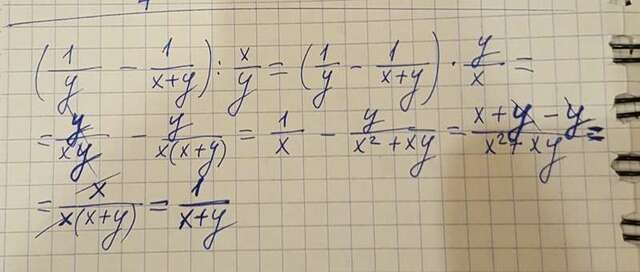 (1/y - 1/(x+y)) : x/y = (1/y - 1/(x+y)) · y/x =
= y/(xy) - y/(x(x+y)) = 1/x - y/(x² + xy) = (x + y - y)/(x² + xy) =
= x/(x(x+y)) = 1/(x+y)